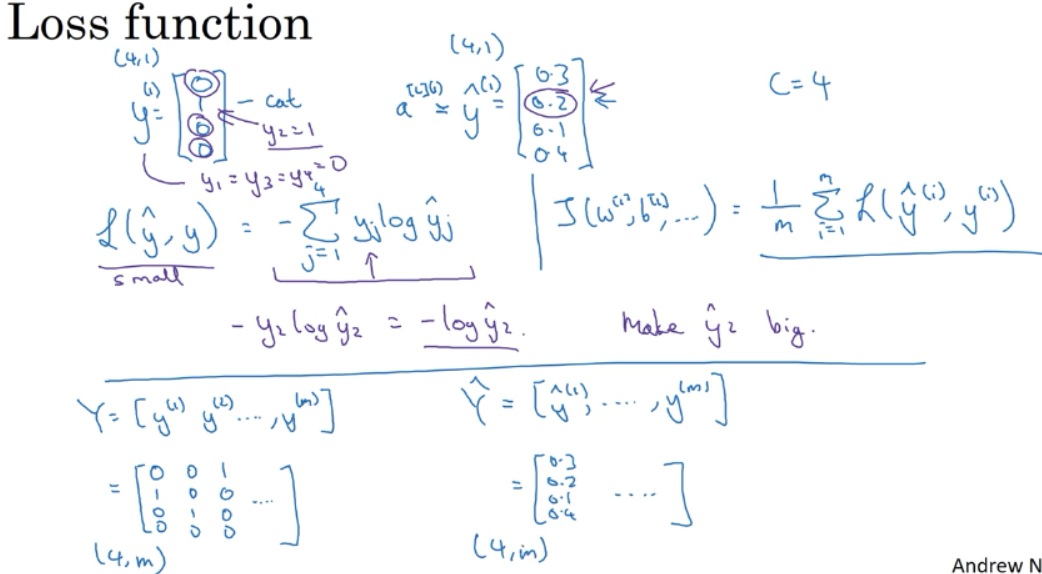 Loss function
(4,1)
y^(1) = [0 1 0 0] - cat
y₂=1
y₁ = y₃ = y₄ = 0
(4,1)
a^[L](1) = ŷ^(1) = [0.3 0.2 0.1 0.4]
C=4
ℒ(ŷ, y) = - ∑_{j=1}^{4} y_j log ŷ_j
small
J(w^[1], b^[1], ....) = 1/m ∑_{i=1}^{m} ℒ(ŷ^(i), y^(i))
- y₂ log ŷ₂ = - log ŷ₂. Make ŷ₂ big.
Y = [y^(1) y^(2) ...., y^(m)]
Ŷ = [ŷ^(1), ...., y^(m)]
= [0 0 1
1 0 0 ....
0 1 0
0 0 0]
(4,m)
= [0.3
0.2
0.1 ....
0.4]
(4,m)
Andrew N